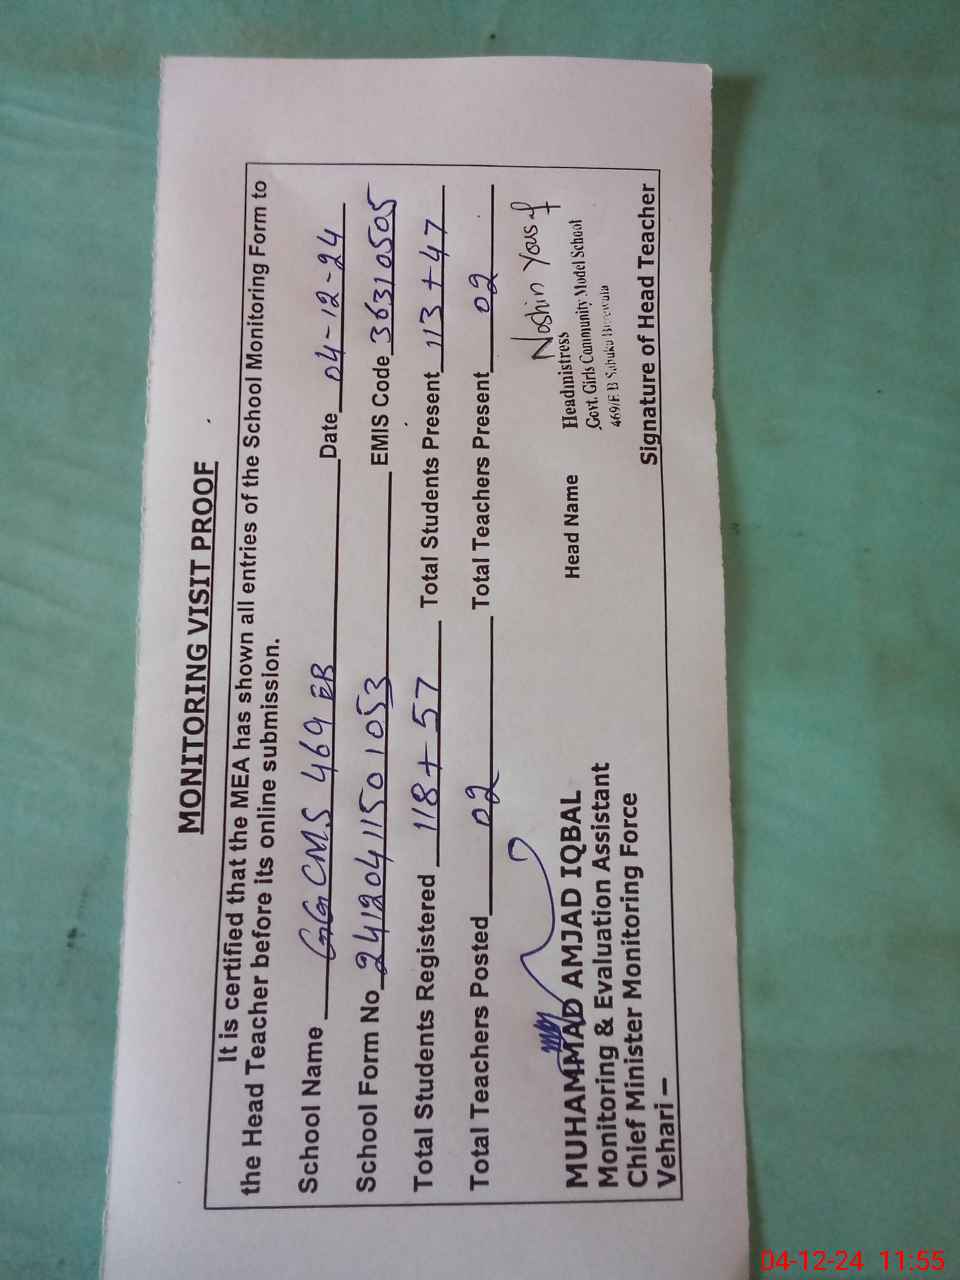 MONITORING VISIT PROOF
It is certified that the MEA has shown all entries of the School Monitoring Form to
the Head Teacher before its online submission.
School Name GGCMS 469 EB Date 04-12-24
School Form No 24120411501053 EMIS Code 36310505
Total Students Registered 118+57 Total Students Present 113+47
Total Teachers Posted 02 Total Teachers Present 02
MUHAMMAD AMJAD IQBAL
Monitoring & Evaluation Assistant
Chief Minister Monitoring Force
Vehari –
Head Name
Noshin Yousaf
Headmistress
Govt. Girls Community Model School
469/E.B
Signature of Head Teacher
04-12-24 11:55